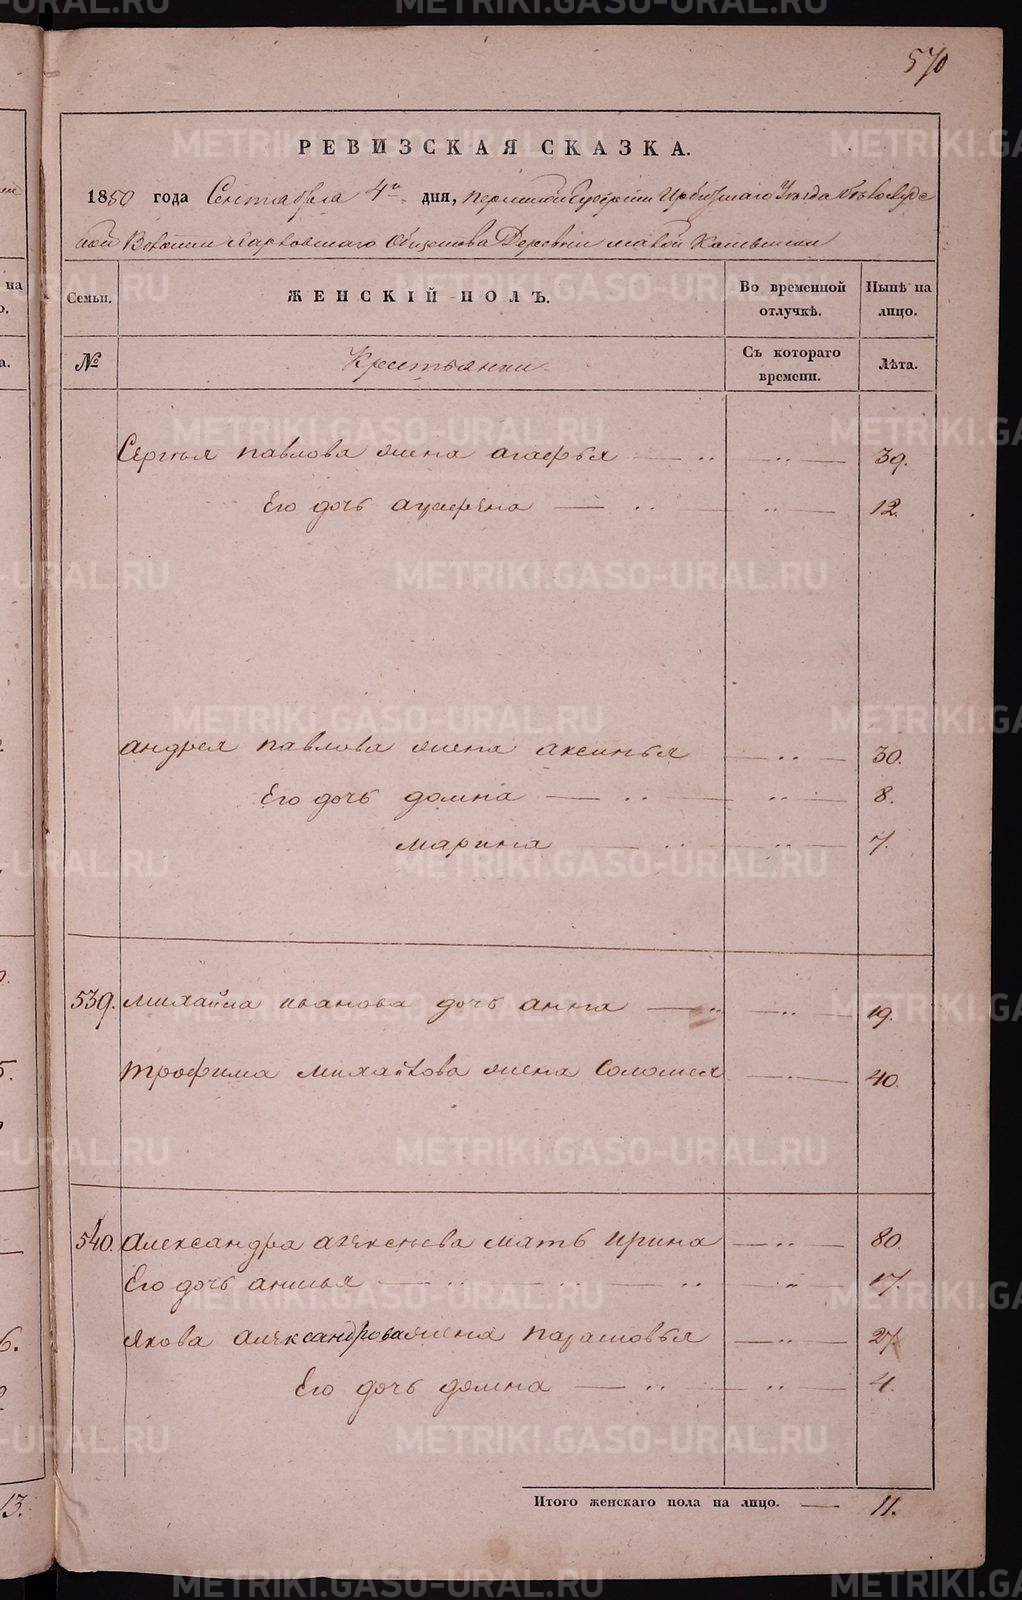 570
РЕВИЗСКАЯ СКАЗКА.
1850 года Сентября 4го дня, Пермской Губернии Ирбитскаго Уезда
Волости Харловскаго Общества Деревни малой
Семьи. ЖЕНСКІЙ ПОЛЪ. Во временной отлучкѣ. Нынѣ на лицо.
№ Крестьянки. Съ котораго времени. Лѣта.
Сергѣя павлова жена агафья 39.
Его дочь агрофена 12.
андрея павлова жена аксинья 30.
Его дочь домна 8.
Марина 7.
539. михайла иванова дочь анна 19.
трофима михайлова жена Соломея 40.
540. Александра алексѣева мать ирина 80.
Его дочь анисья 17.
якова александрова жена парасковья 27.
Его дочь домна 4.
Итого женскаго пола на лицо. 11.
на
о.
а.
13.
METRIKI.GASO-URAL.RU